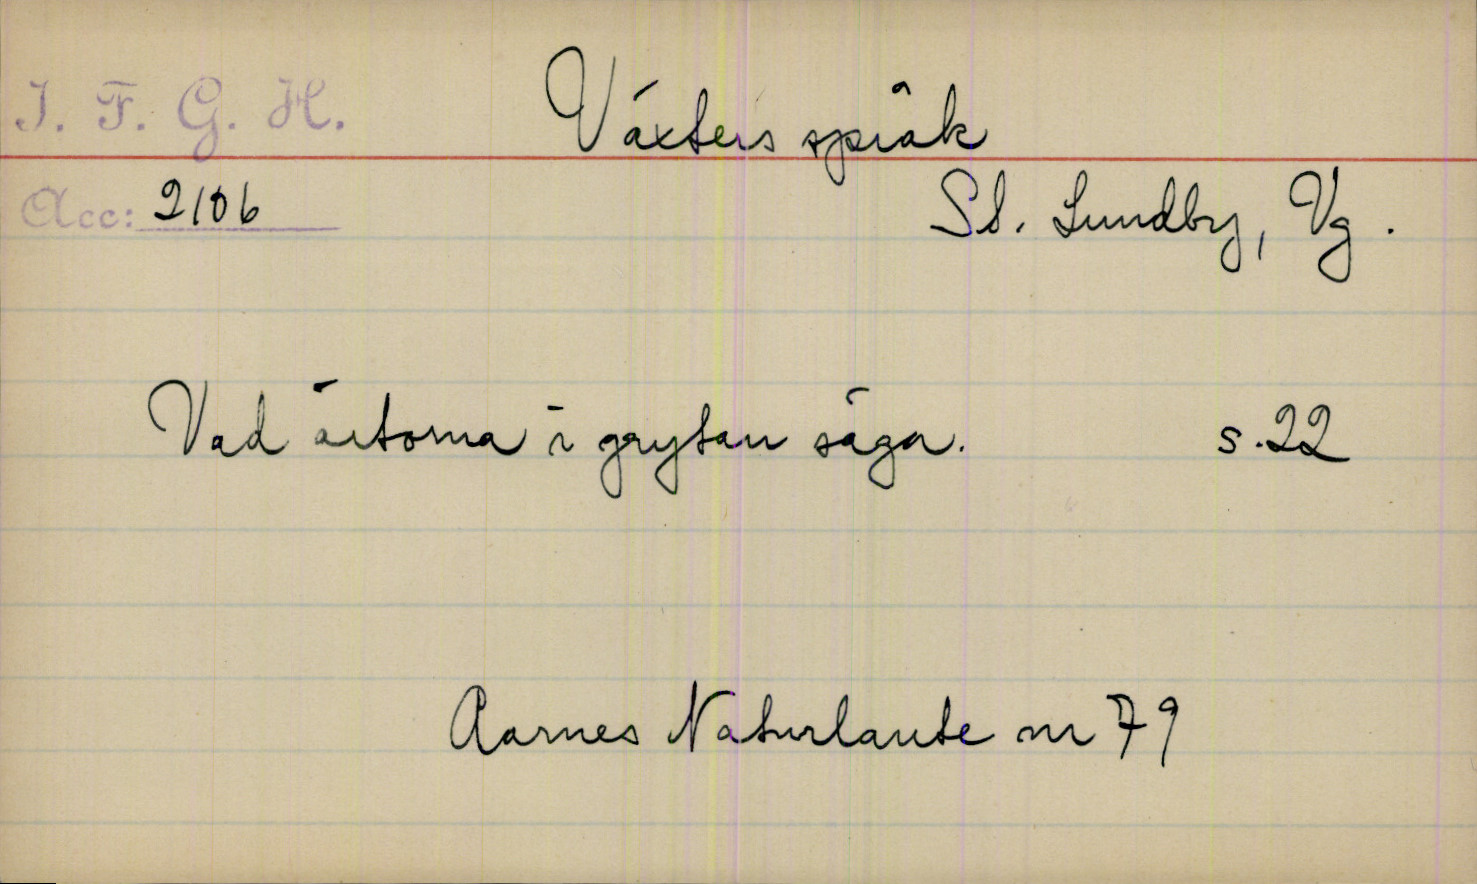 I. F. G. H.
Växters språk
Acc: 2106
St. Lundby, Vg.
Vad ärtorna i grytan säga. s. 22
Aarnes Naturlaute nr 79